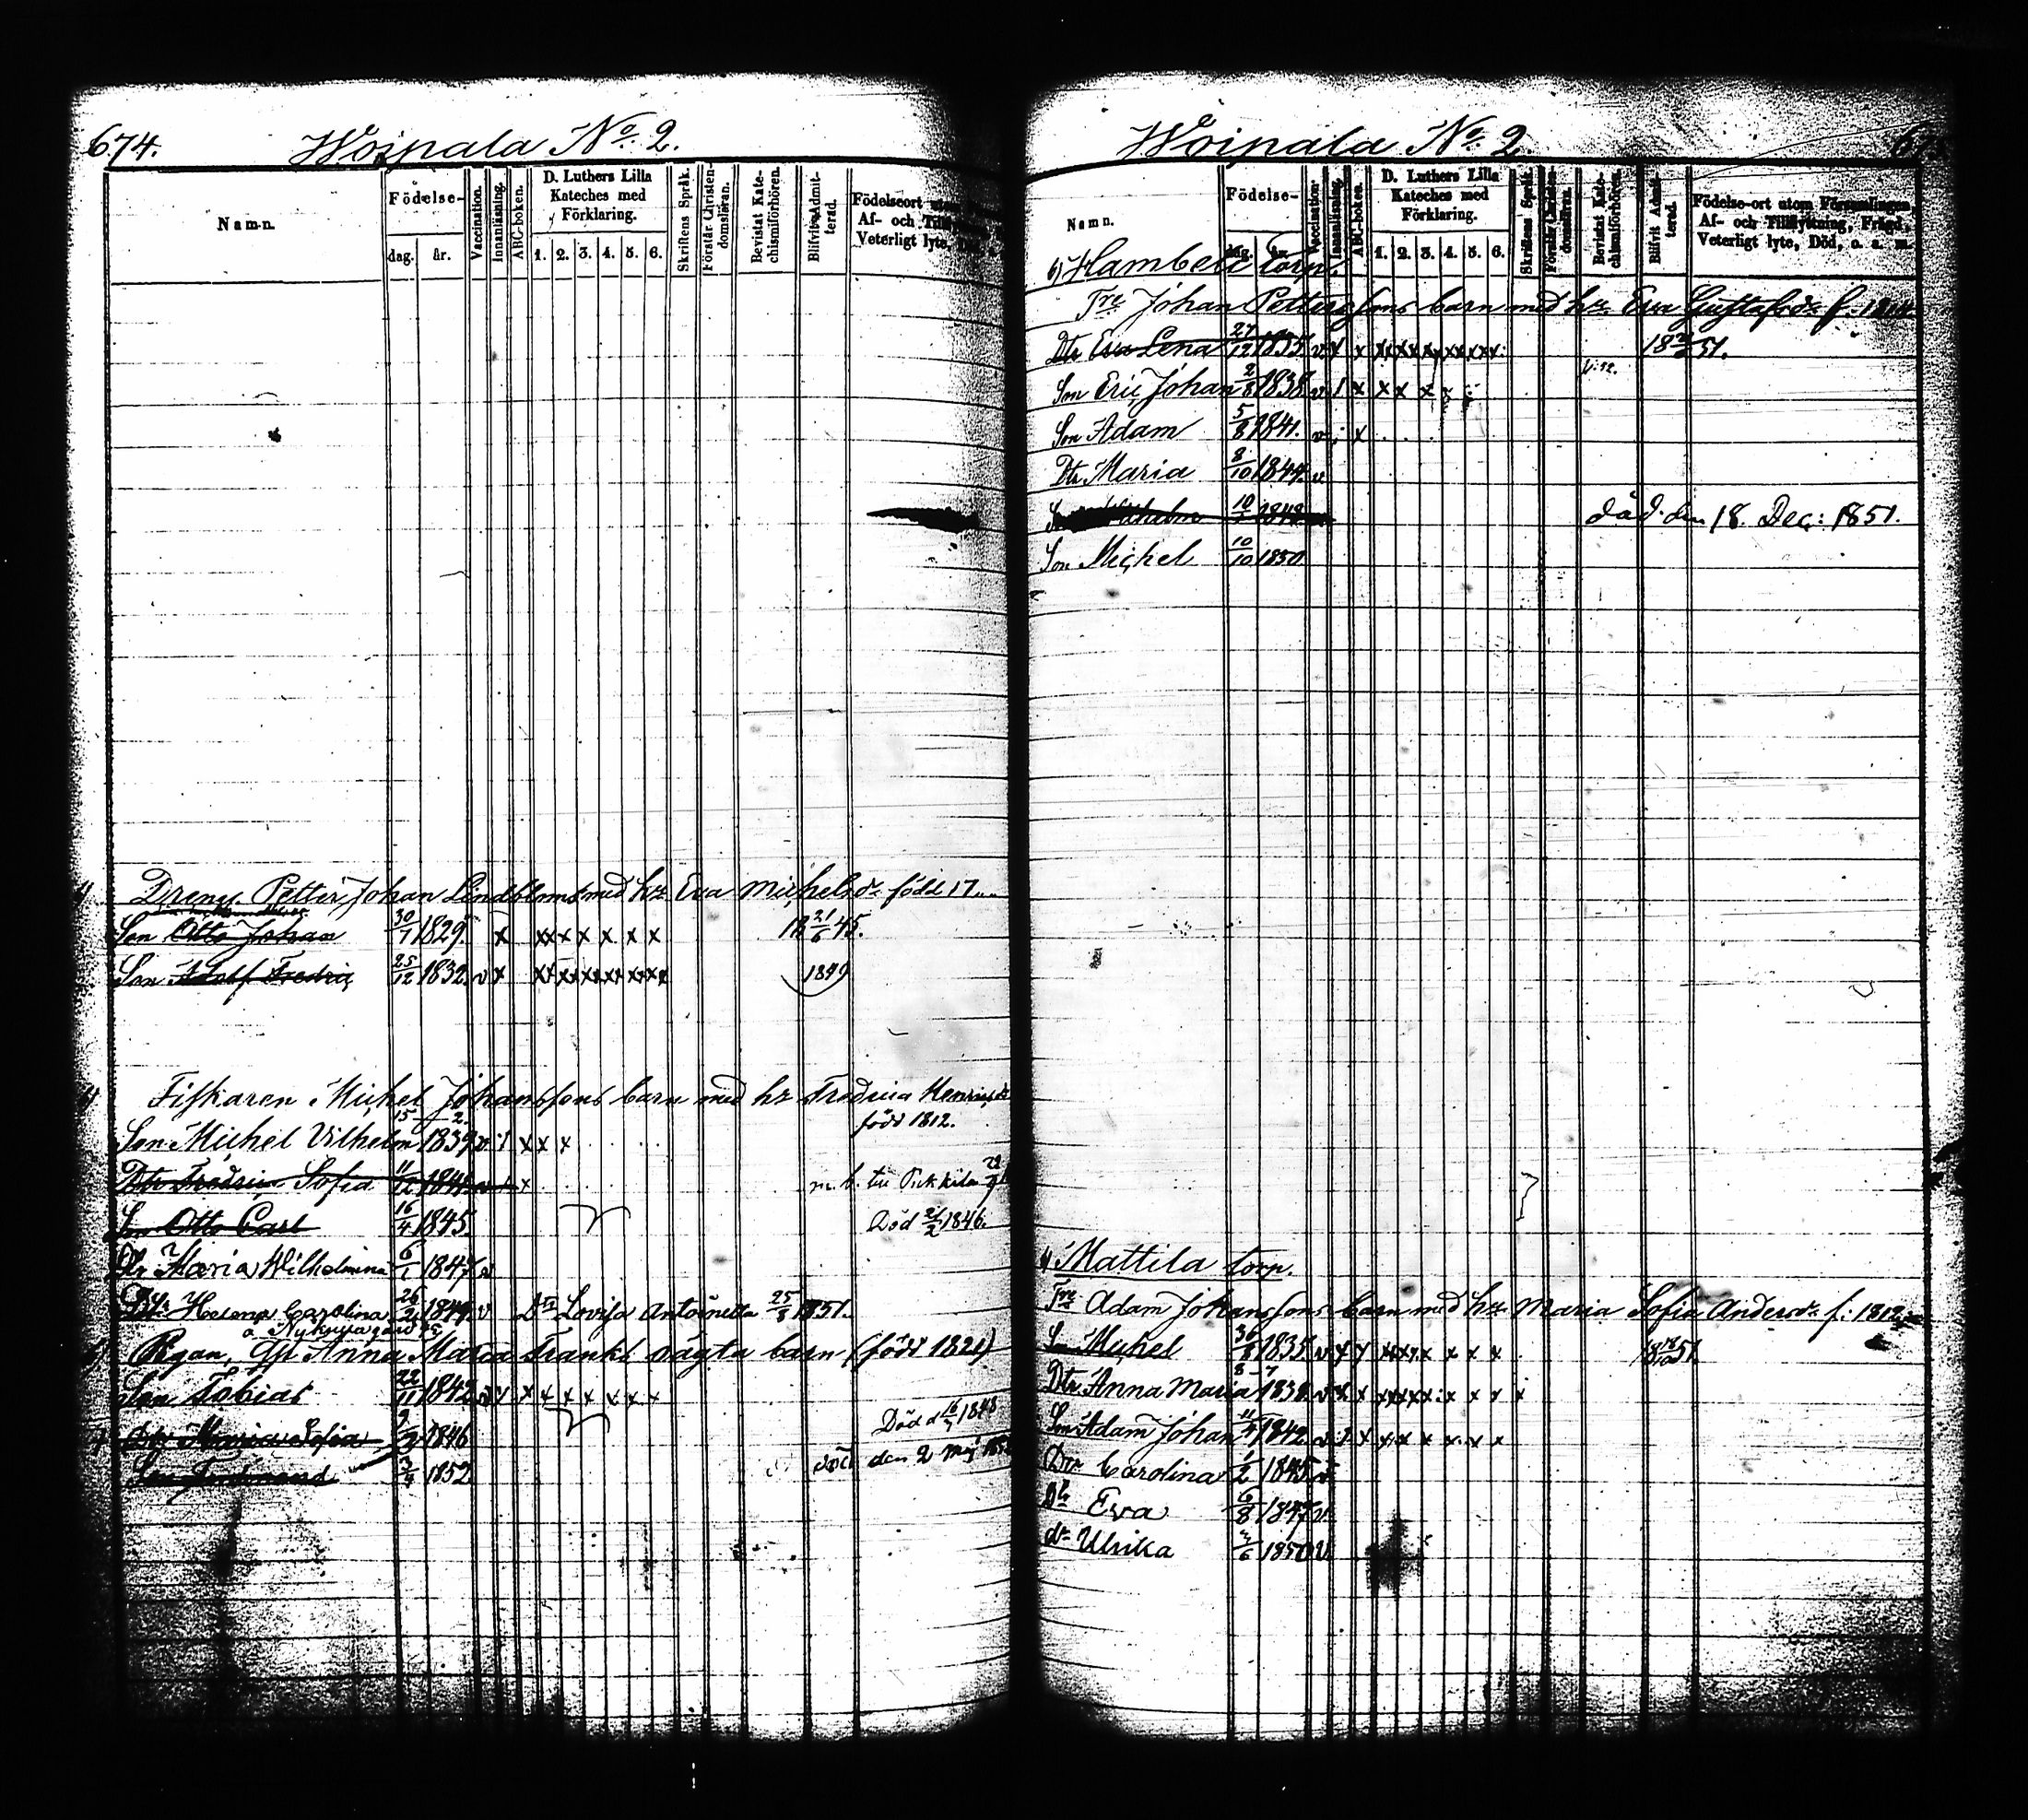 674.
Woipala No. 2.
Namn.
Födelse-
dag. år.
Vaccination.
Innanläsning.
ABC-boken.
D. Luthers Lilla
Kateches med
Förklaring.
1. 2. 3. 4. 5. 6.
Skriftens Språk.
Förstår Christen-
domsläran.
Bevistat Kate-
chismiförhören.
Blifvit Admit-
terad.
Födelseort utom
Af- och
Veterligt lyte,
Dreng. Petter Johan Lindbloms med hr Eva Michelsdr född 17
Son Otto Johan 30/7 1829. x xx x x x x x 18 21/6 45.
Son Adolf Fredric 25/12 1832. v x xx xx xx xx xx xx 1849
Fiskaren Michel Johanssons barn med hr Fredrica Henricsdr
född 1812.
Son Michel Vilhelm 15/2 1839 v x x x
Dtr Fredrica Sofia 11/12 1841 v x m. b. till
Son Otto Carl 16/4 1845. Död 2/2 1846.
Dtr Maria Wilhelmina 6/1 1847 v
Dtr Helena Carolina 26/2 1849. v Dtr Lovisa Antoinetta 25/8 1851.
Pigan, Anna Maria Frankt oägta barn (född 1821)
Son Tobias 22/11 1842 v x x x x x x x
Dtr Maria Sofia 9/2 1846 Död d 16/7 1848
Son Ferdinand 3/4 1852 död den 2 Maj 1852
Woipala No. 2.
Namn.
Födelse-
dag. år.
Vaccination.
Innanläsning.
ABC-boken.
D. Luthers Lilla
Kateches med
Förklaring.
1. 2. 3. 4. 5. 6.
Skriftens Språk.
Förstår Christen-
domsläran.
Bevistat Kate-
chismiförhören.
Blifvit Admit-
terad.
Födelse-ort utom Församlingen,
Af- och Tillflyttning, Frägd,
Veterligt lyte, Död, o. a. m.
torp.
Tre Johan Petterssons barn med hr Eva Gustafsdr f. 1814
Dtr Eva Lena 27/12 1835 v x x xx xx xx xx xx xx 51.
Son Eric Johan 2/8 1838 v 1 x x x x
Son Adam 5/8 1841. v x
Dtr Maria 8/10 1844. v
död. den 18. Dec: 1851.
Son Michel 10/10 1850
Mattila torp.
Tre Adam Johanssons barn med hr Maria Sofia Andersdr f: 1812
Son Michel 1835. 51.
Dtr Anna Maria 8-7 1838.
Son Adam Johan 11/4 1842
Dtr Carolina 1/2 1845 v
Dtr Eva 6/8 1847 v
dr Ulrika 3/6 1850 v